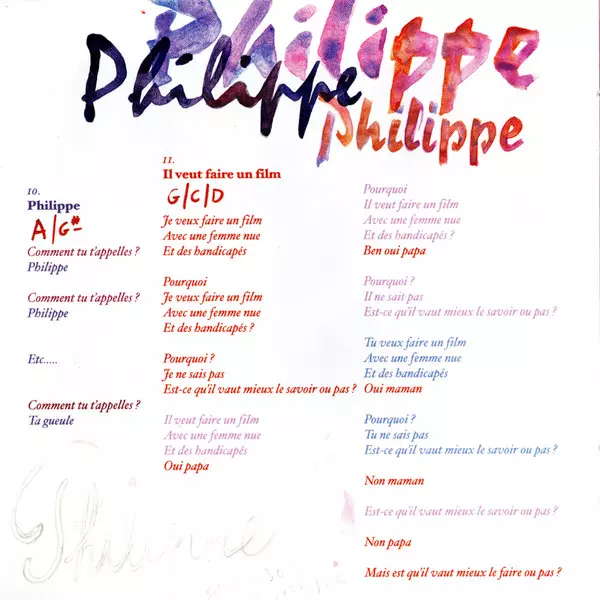 Philippe
Philippe
philippe
10.
Philippe
A/G#
Comment tu t'appelles ?
Philippe
Comment tu t'appelles ?
Philippe
Etc.....
Comment tu t'appelles ?
Ta gueule
11.
Il veut faire un film
G/C/D
Je veux faire un film
Avec une femme nue
Et des handicapés
Pourquoi
Je veux faire un film
Avec une femme nue
Et des handicapés ?
Pourquoi ?
Je ne sais pas
Est-ce qu'il vaut mieux le savoir ou pas ?
Il veut faire un film
Avec une femme nue
Et des handicapés
Oui papa
Pourquoi
Il veut faire un film
Avec une femme nue
Et des handicapés ?
Ben oui papa
Pourquoi ?
Il ne sait pas
Est-ce qu'il vaut mieux le savoir ou pas ?
Tu veux faire un film
Avec une femme nue
Et des handicapés
Oui maman
Pourquoi ?
Tu ne sais pas
Est-ce qu'il vaut mieux le savoir ou pas ?
Non maman
Est-ce qu'il vaut mieux le savoir ou pas ?
Non papa
Mais est qu'il vaut mieux le faire ou pas ?
Philippe